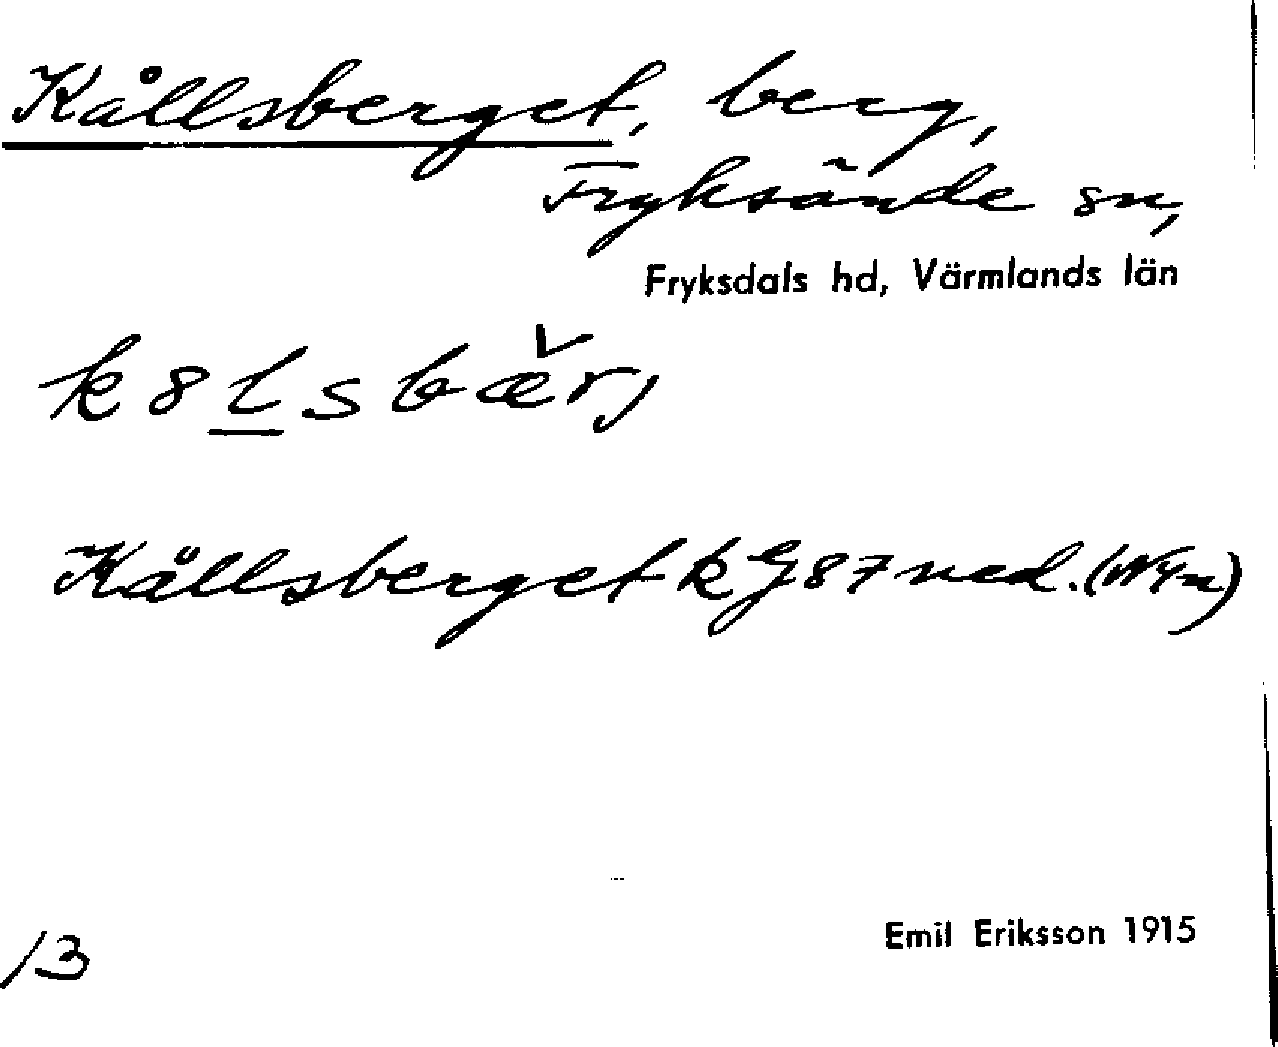 Kållsberget, berg,
Fryksände sn,
Fryksdals hd, Värmlands län
k8lsbæ̌rj
Kållsberget k G 87 ned.
13
Emil Eriksson 1915